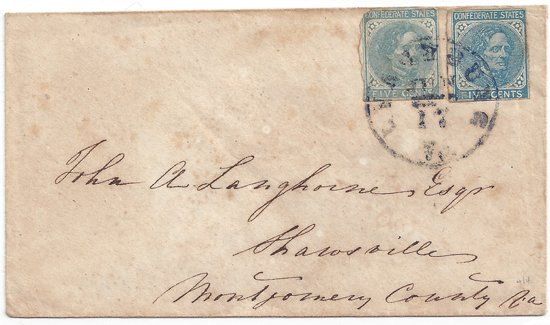 CONFEDERATE STATES CONFEDERATE STATES
FIVE CENTS FIVE CENTS
17
VA
John A Langhorne Esqr
Shawsville
Montgomery County Va